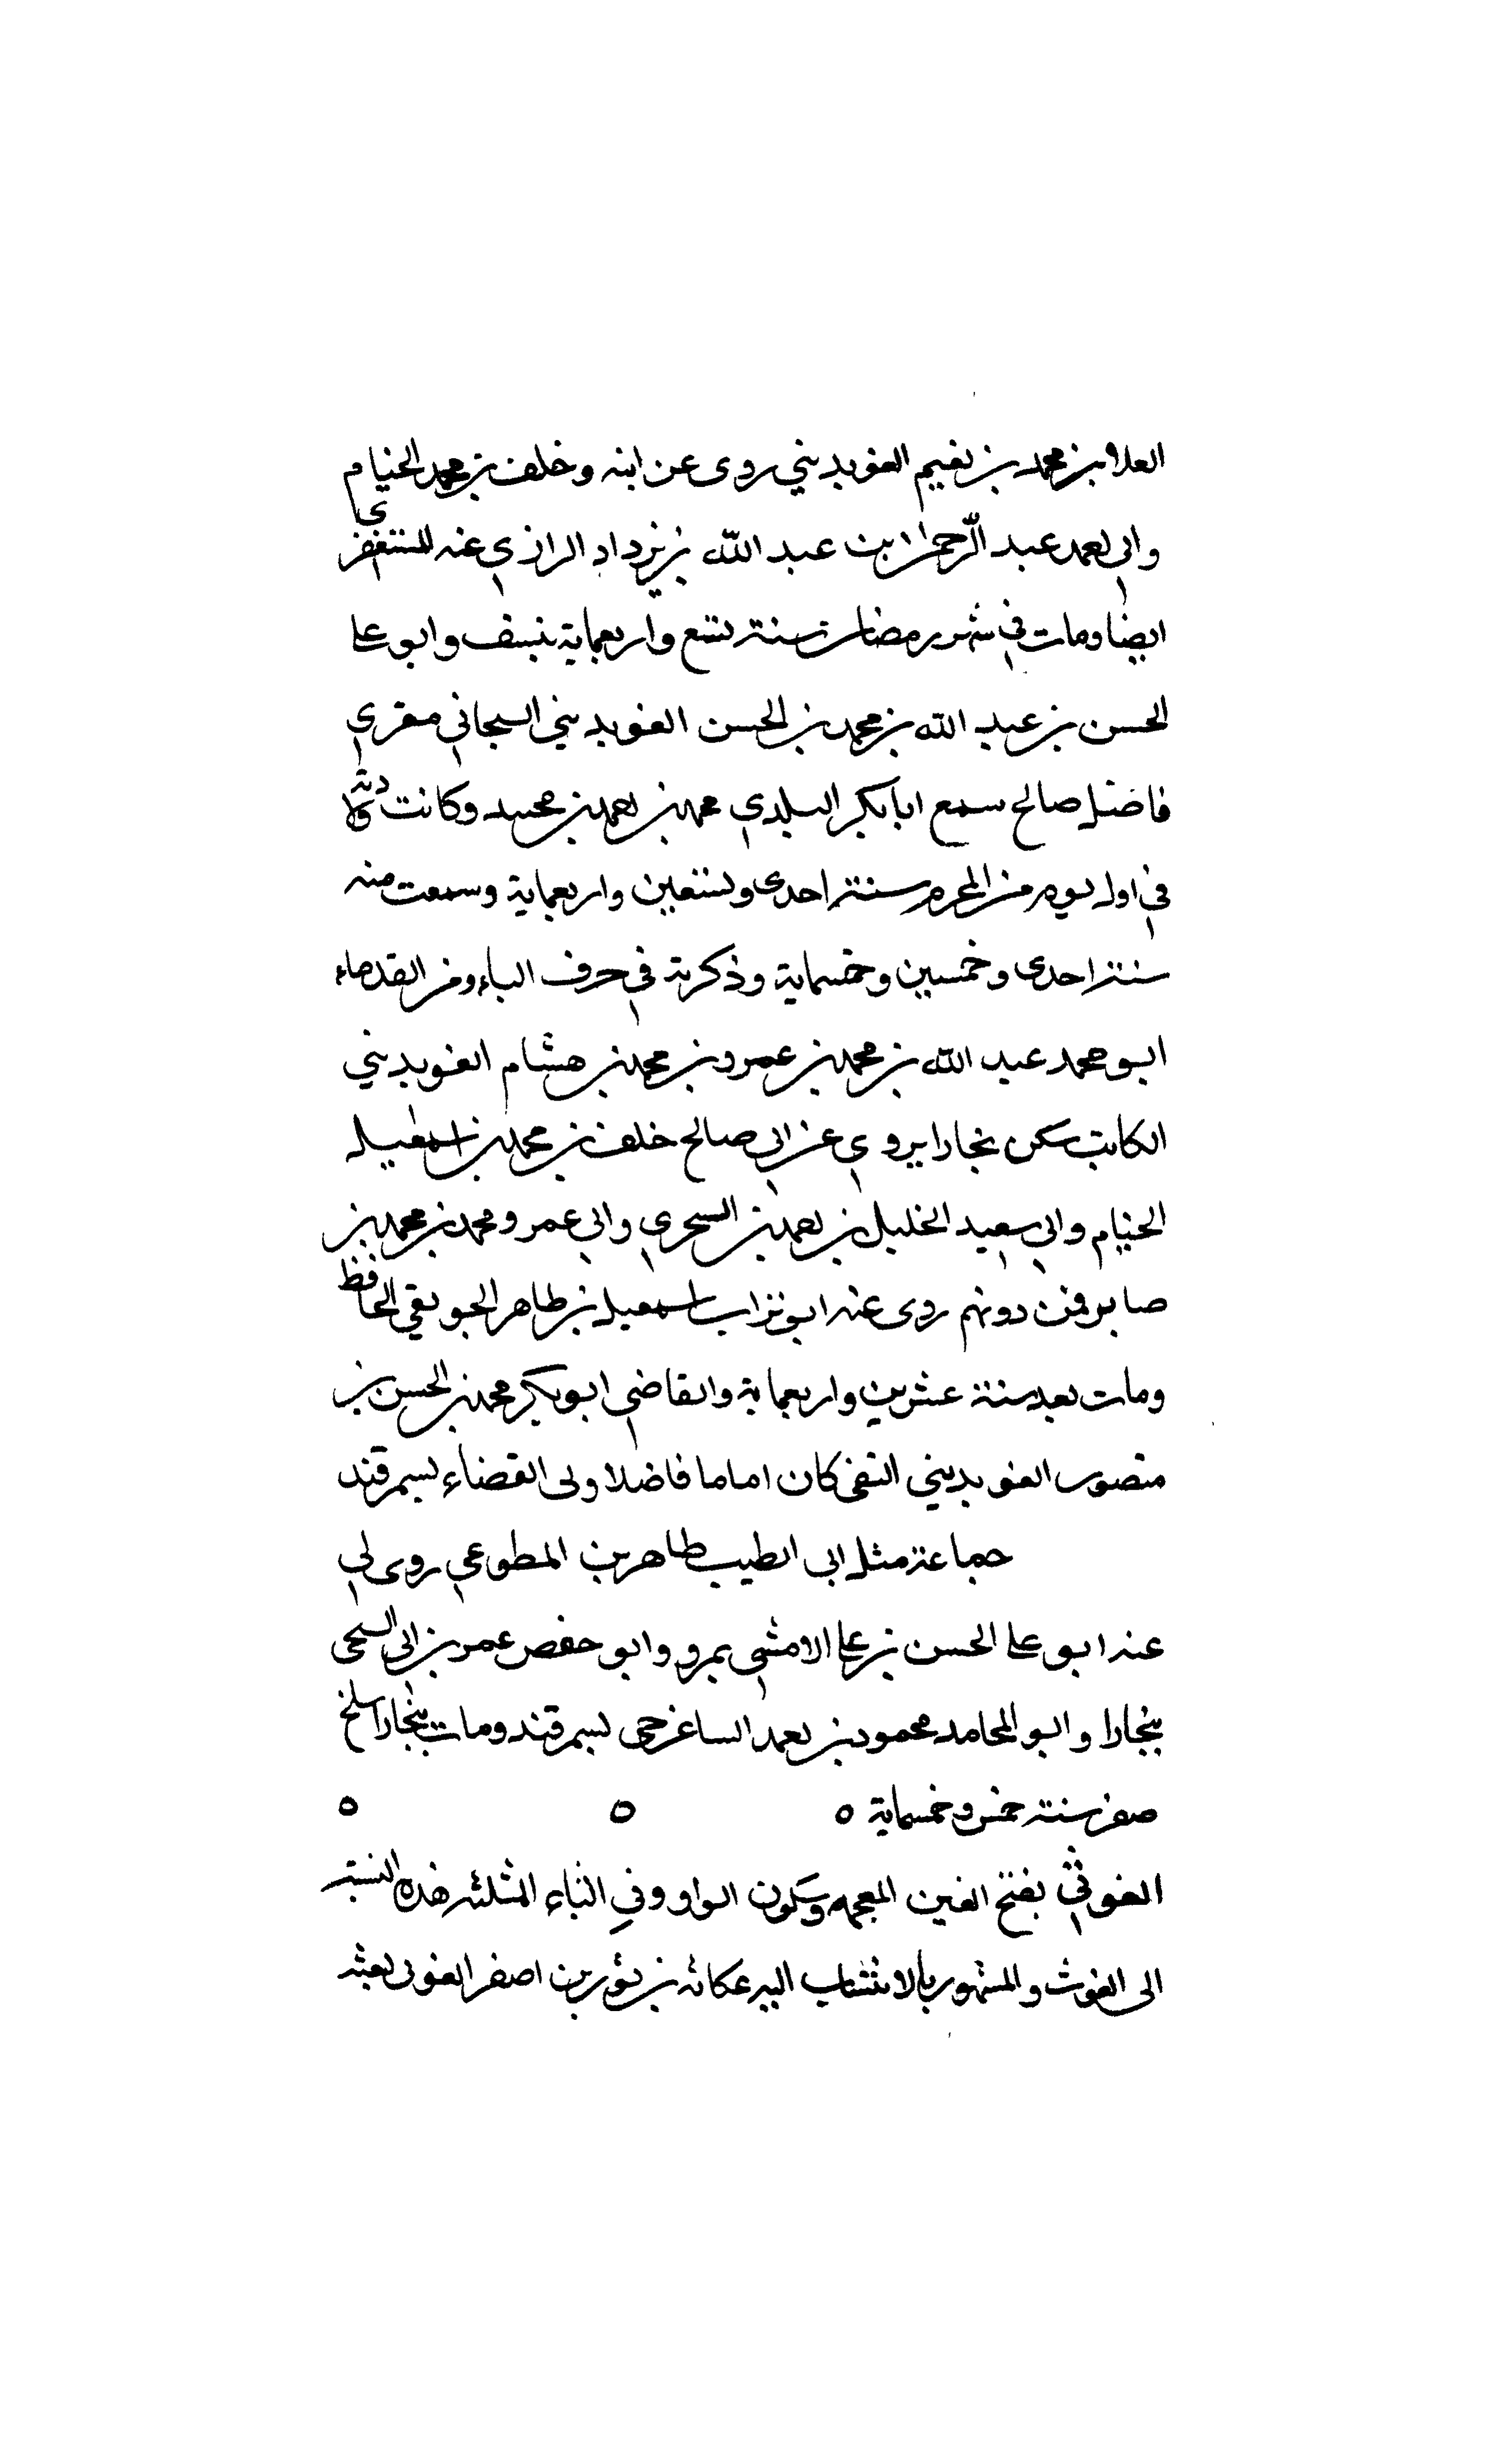 العلا بن محمد بن نعيم الغوبديني روى عن ابنه وخلف بن محمد الخيام
وابي احمد عبد الرحمن ابن عبد الله بن يزداد الرازي عنه المستغفري
ايضا ومات في شهر رمضان سنة تسع واربعماية بنسف وابو علي
الحسن بن عبد الله بن محمد بن الحسن الغوبديني السبحاني مقري
فاضل صالح سمع ابا بكر البلدي محمد بن احمد بن محمد وكانت ولادته
في اول يوم من المحرم سنة احدى وتسعين واربعماية وسمعت منه
سنة احدى وخمسين وخمسماية وذكرته في حرف الباء ومن القدماء
ابو محمد عبد الله بن محمد بن عمرو بن محمد بن هشام الغوبديني
الكاتب سكن بخارا يروي عن ابي صالح خلف بن محمد بن اسمعيل
الخيام وابي سعيد الخليل بن احمد بن السجري وابي عمرو محمد بن محمد بن
صابر فمن دونهم روى عنه ابو تراب اسمعيل بن طاهر الجوبقي الحافظ
ومات بعد سنة عشرين واربعماية والقاضي ابو بكر محمد بن الحسن بن
منصور الغوبديني النقفي كان اماما فاضلا ولى القضاء بسمرقند
جماعة مثل ابي الطيب طاهر بن المطوعي روى لي
عنه ابو علي الحسن بن علي الامشي بمرو وابو حفص عمر بن ابي
ببخارا وابو المحامد محمود بن احمد الساغرجى بسمرقند ومات ببخارا سلخ
صفر سنة خمس وخمسماية ه ه ه
الغوثي بفتح الغين المعجمه وسكون الواو وفي الثاء المثلثه هذه النسبة
الى الغوث والمشهور بالانتساب اليه عكاثه بن نور بن اصغر الغوثى بعثه